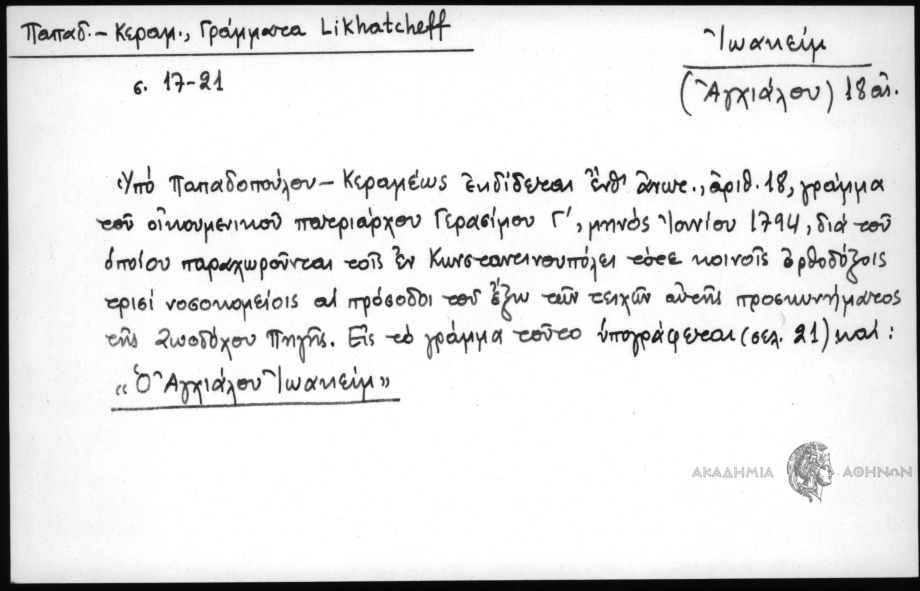 Παπαδ.-Κεραμ., Γράμματα Likhatcheff
σ. 17-21
Ἰωακείμ
(Ἀγχιάλου) 18 αἰ.
Ὑπό Παπαδοπούλου-Κεραμέως ἐκδίδεται ἔνθ' ἀνωτ., ἀριθ. 18, γράμμα
τοῦ οἰκουμενικοῦ πατριάρχου Γερασίμου Γ', μηνός Ἰουνίου 1794, διά τοῦ
ὁποίου παραχωροῦνται τοῖς ἐν Κωνσταντινουπόλει τότε κοινοῖς ὀρθοδόξοις
τρισί νοσοκομείοις αἱ πρόσοδοι τοῦ ἔξω τῶν τειχῶν αὐτῆς προσκυνήματος
τῆς Ζωοδόχου Πηγῆς. Εἰς τό γράμμα τοῦτο ὑπογράφεται (σελ. 21) καί:
«Ὁ Ἀγχιάλου Ἰωακείμ»
ΑΚΑΔΗΜΙΑ ΑΘΗΝΩΝ